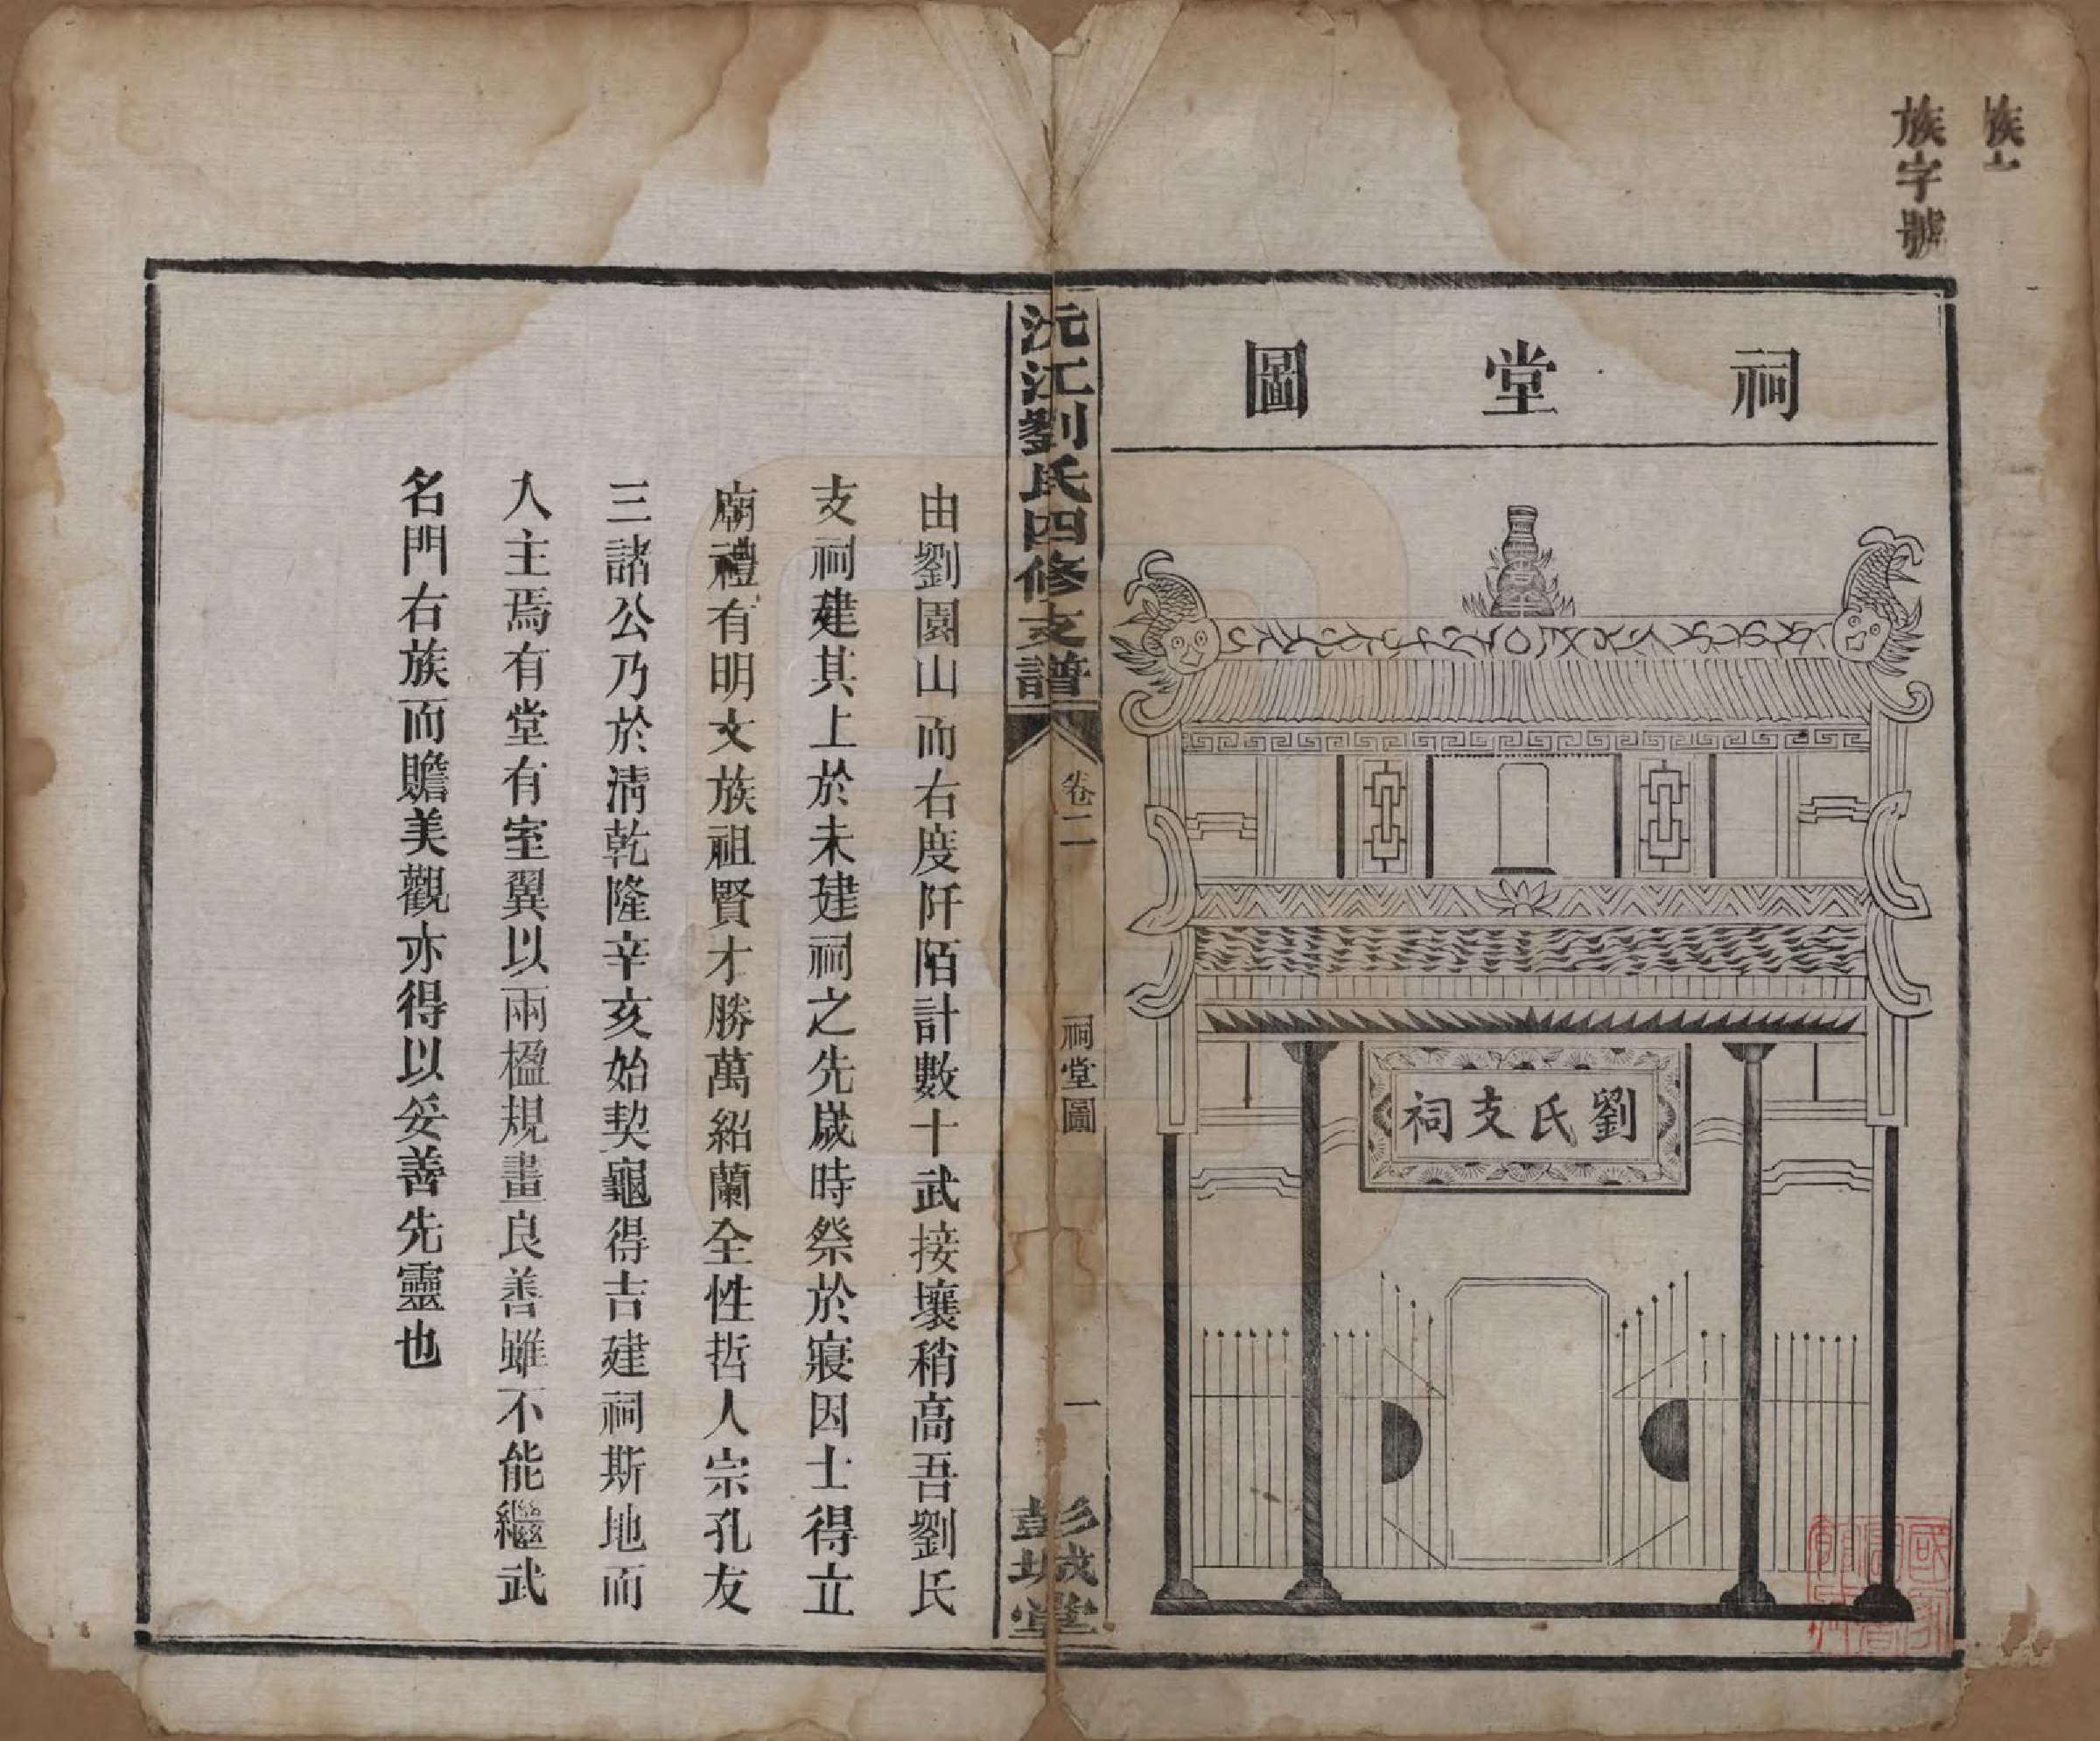 族字號
祠堂圖
劉氏支祠
沅江劉氏四修支譜
卷二
祠堂圖
一
彭城堂
由劉園山而右度阡陌計數十武接壤稍高吾劉氏
支祠建其上於未建祠之先歲時祭於寢因士得立
廟禮有明文族祖賢才勝萬紹蘭全性哲人宗孔友
三諸公乃於清乾隆辛亥始契龜得吉建祠斯地而
人主焉有堂有室翼以兩楹規畫良善雖不能繼武
名門右族而贍美觀亦得以妥善先靈也